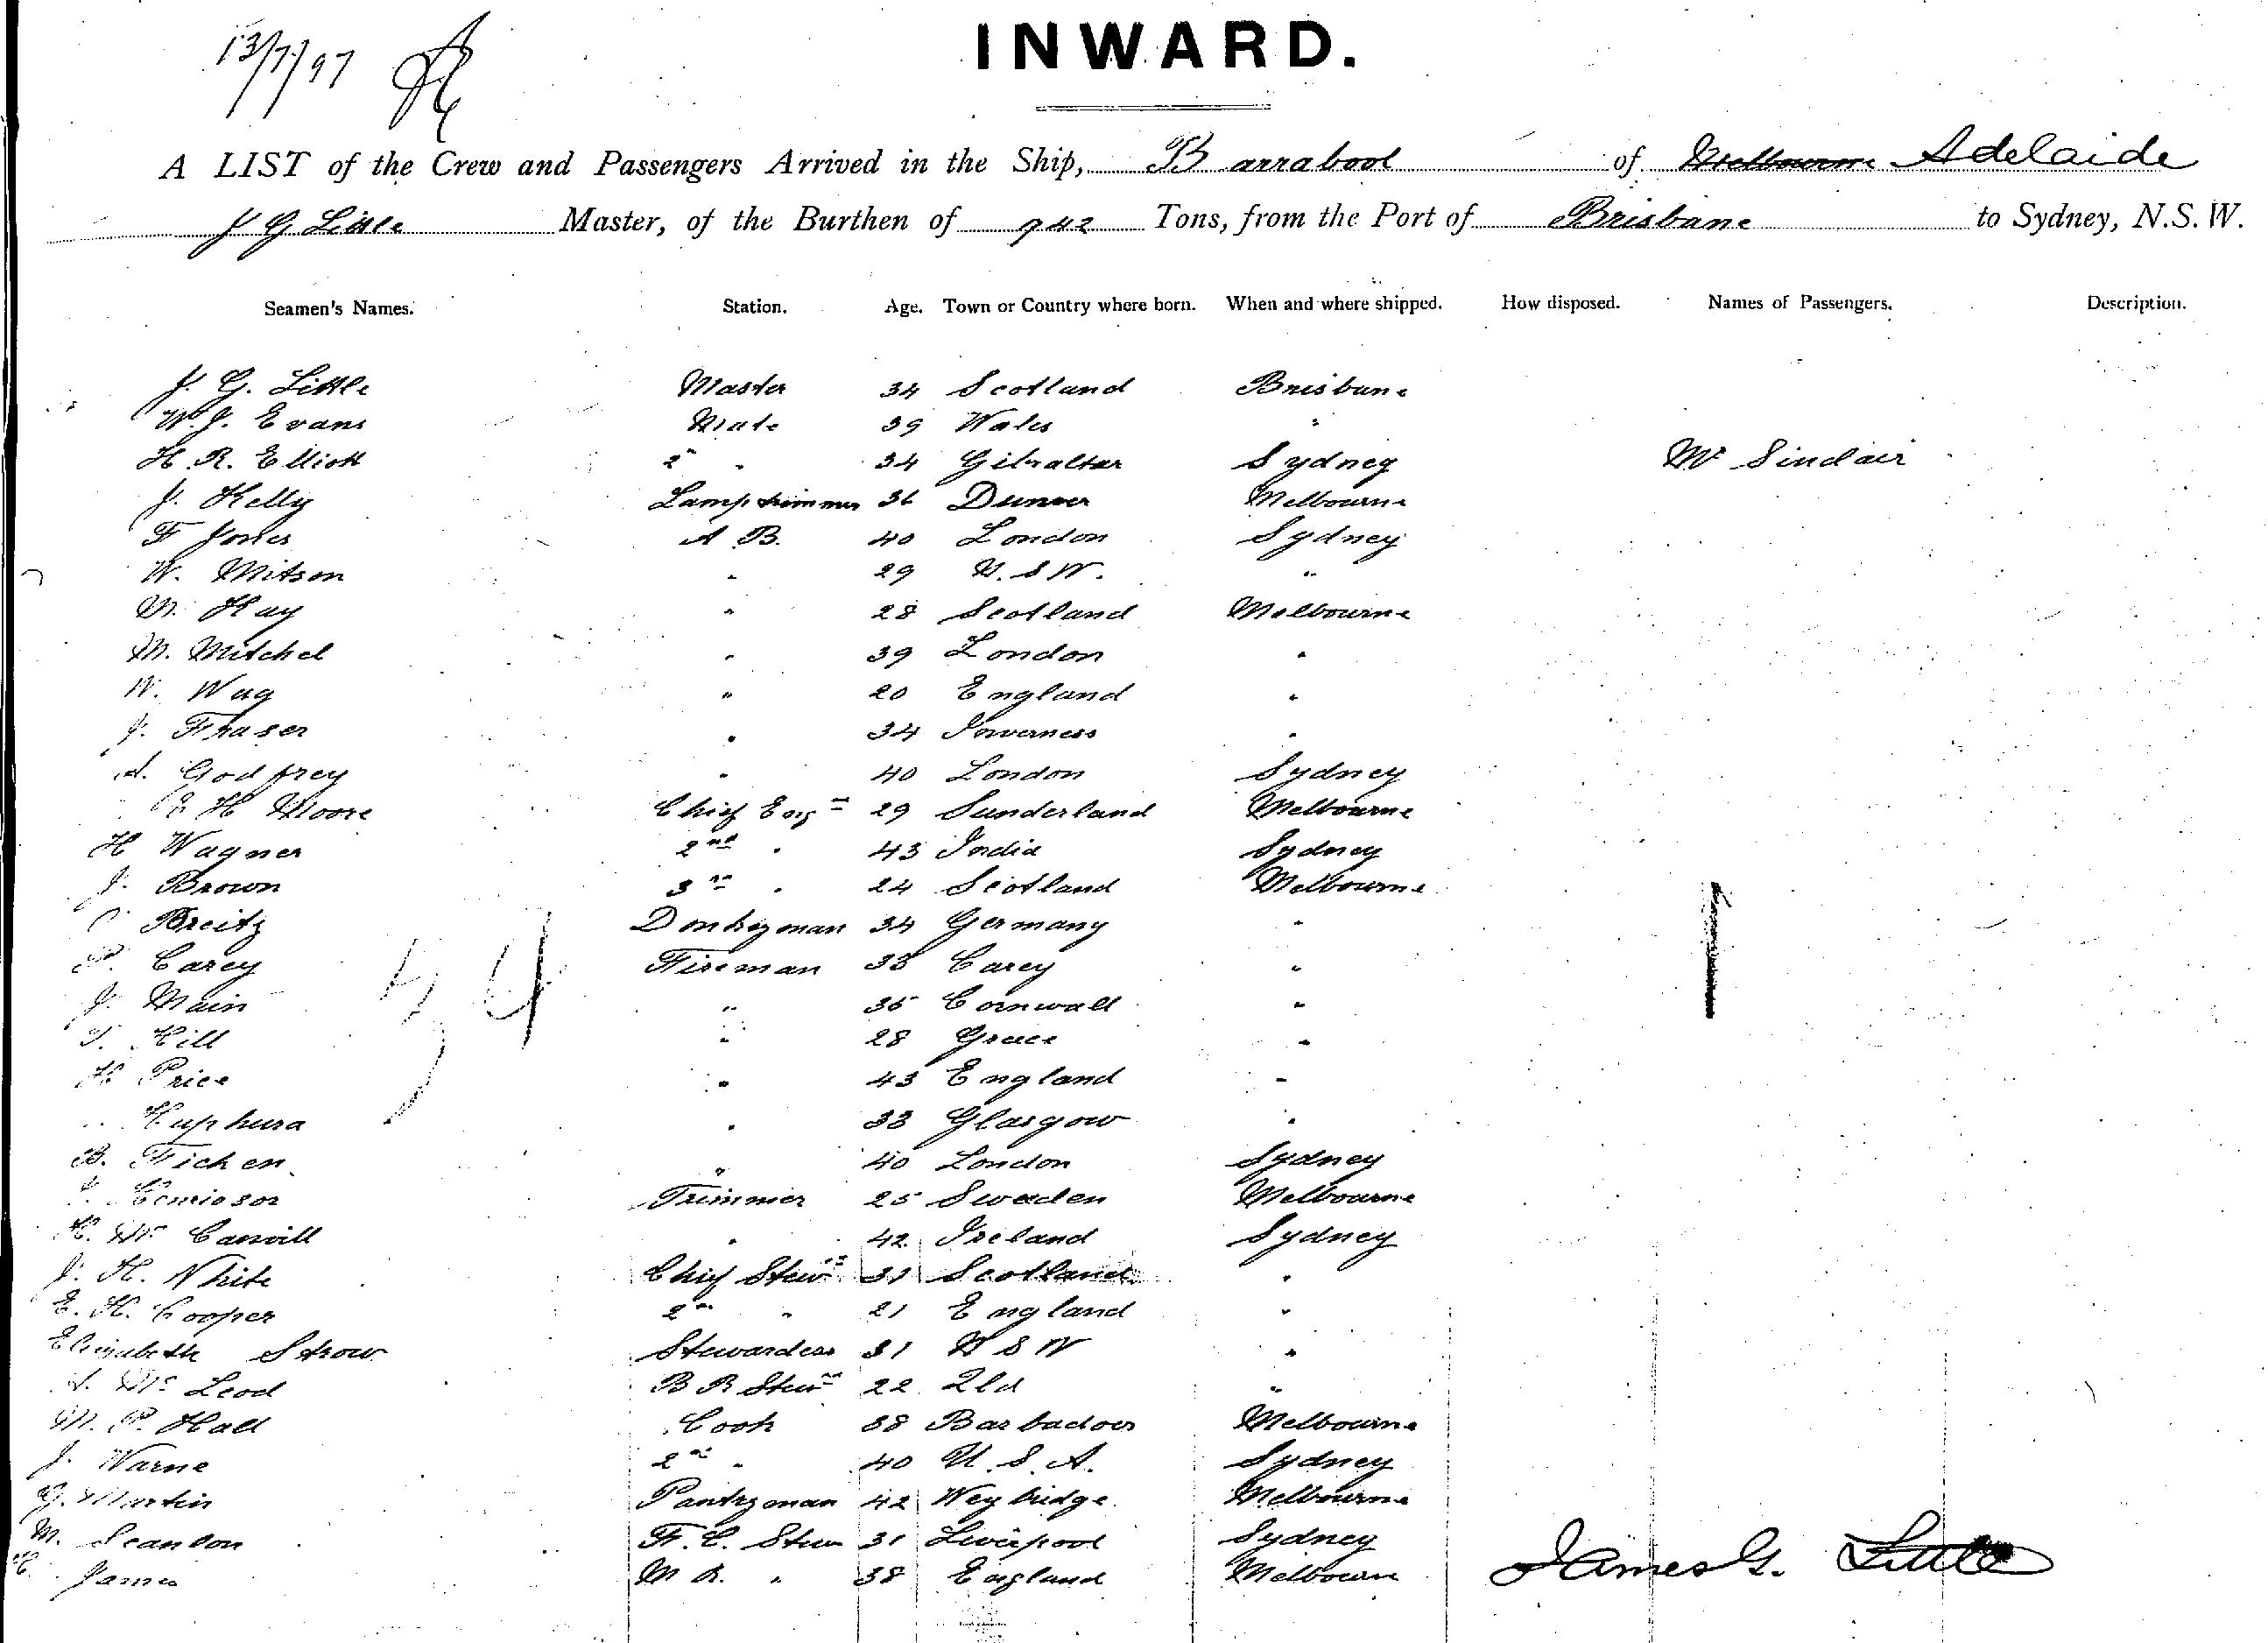 13/7/97
INWARD.
A LIST of the Crew and Passengers Arrived in the Ship, Barrabool of Melbourne Adelaide
J G Little Master, of the Burthen of 942 Tons, from the Port of Brisbane to Sydney, N.S.W.
Seamen's Names. Station. Age. Town or Country where born. When and where shipped. How disposed. Names of Passengers. Description.
J. G. Little Master 34 Scotland Brisbane
W. J. Evans Mate 39 Wales "
H. R. Elliott 2nd " 34 Gibraltar Sydney Mr Sinclair
J. Kelly Lamptrimmer 36 Melbourne
F Jones A B. 40 London Sydney
W. Mitson " 29 N.S.W. "
M. Hay " 28 Scotland Melbourne
M. Mitchel " 39 London "
W. Way " 20 England "
J. Fraser " 34 Inverness "
A. Godfrey " 40 London Sydney
E H Moore Chief Engr 29 Sunderland Melbourne
H Wagner 2nd " 43 India Sydney
J. Brown 3rd " 24 Scotland Melbourne
Breitz Donkeyman 34 Germany "
P. Carey Fireman 33 Carey "
J. Main " 35 Cornwall "
T. Hill " 28 Greece "
H Price " 43 England "
" 33 Glasgow "
B. Fichen " 40 London Sydney
Trimmer 25 Sweden Melbourne
H. Mc Carvill " 42 Ireland Sydney
J. H. White Chief Stewd 31 Scotland "
E. H. Cooper 2nd " 21 England "
Elizabeth Strow Stewardess 31 N S W "
A. Mc Leod B R Stewd 22 Qld "
M. P. Hall Cook 38 Barbadoes Melbourne
J. Warne 2nd " 40 U.S.A. Sydney
G. Martin Pantryman 42 Weybridge Melbourne
M. Scanlon F. C. Stew 31 Liverpool Sydney
James M R. " 38 England Melbourne
34
1
James G. Little